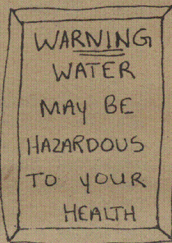 WARNING
WATER
MAY BE
HAZARDOUS
TO YOUR
HEALTH